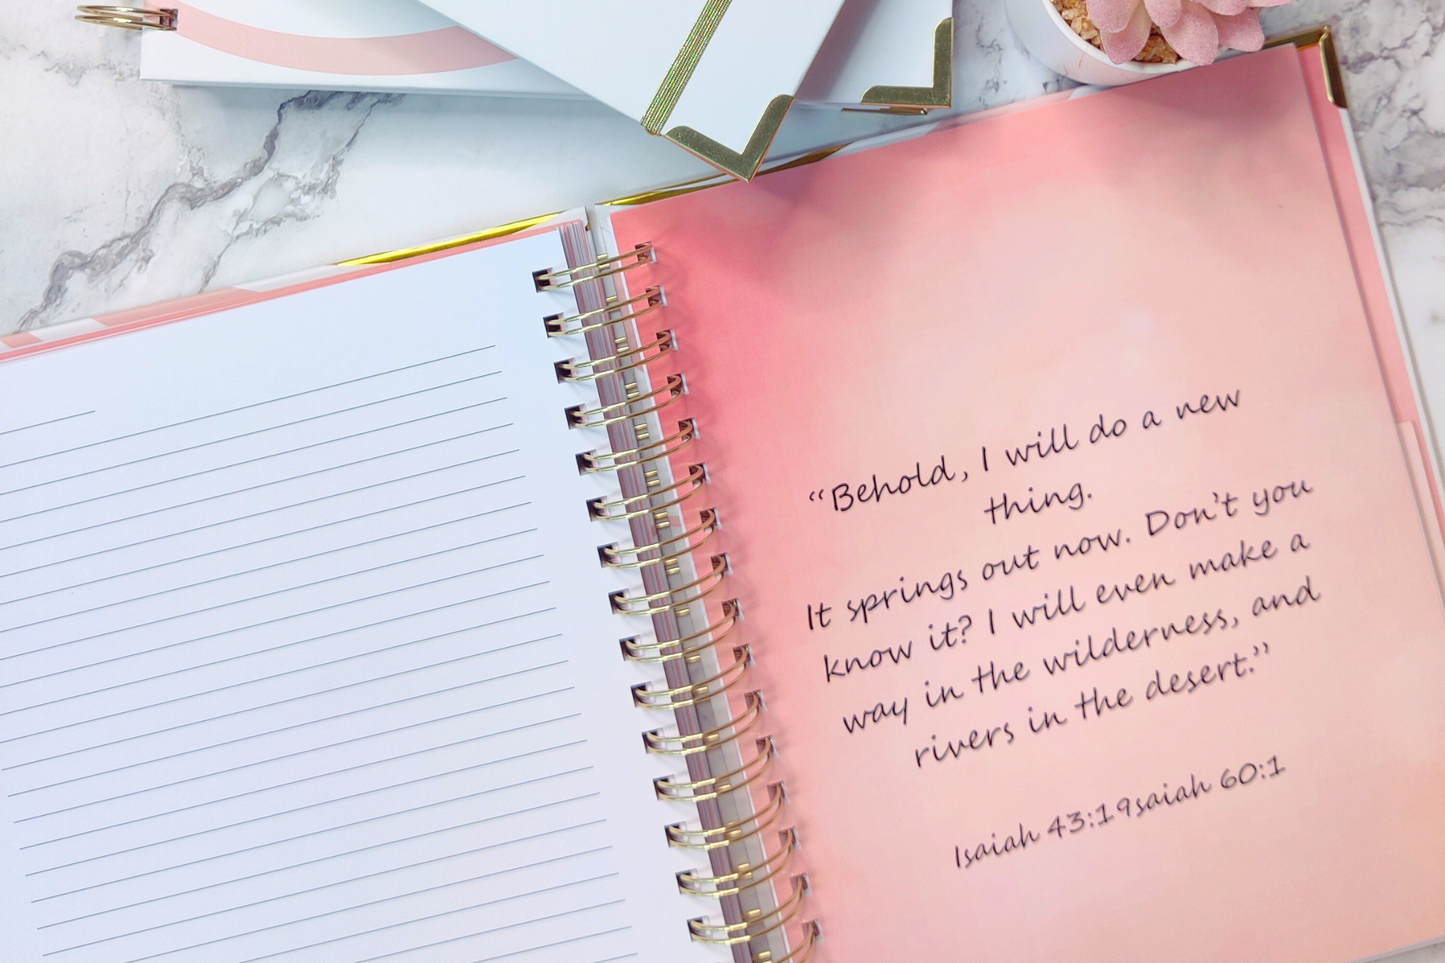 “Behold, I will do a new
thing.
It springs out now. Don’t you
know it? I will even make a
way in the wilderness, and
rivers in the desert.”
Isaiah 43:19saiah 60:1